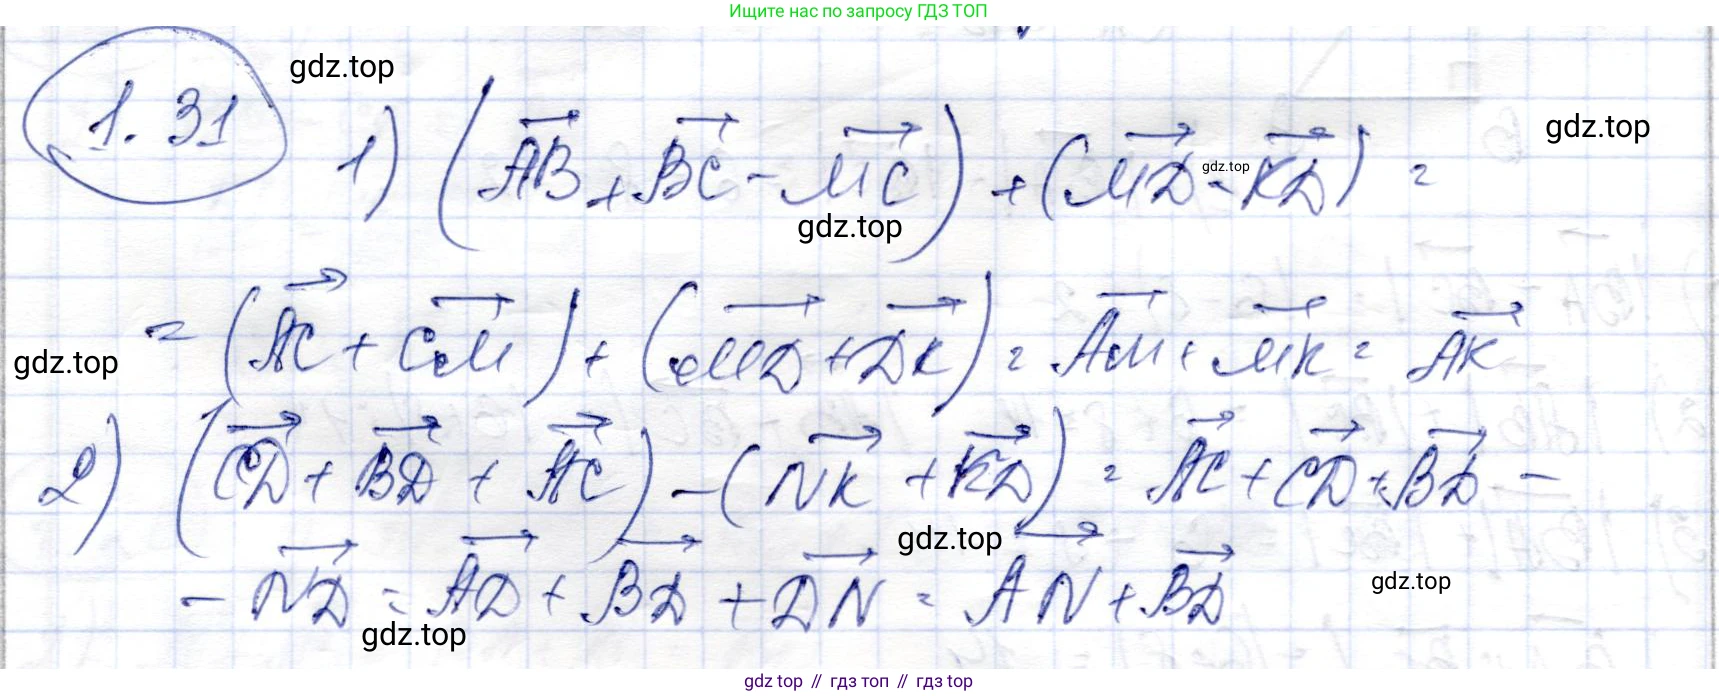 Ищите нас по запросу ГДЗ ТОП
gdz.top
1.31
1) (AB + BC - MC) + (MD - KD) =
gdz.top
gdz.top
gdz.top
= (AC + CM) + (MD + DK) = AM + MK = AK
gdz.top
2) (CD + BD + AC) - (NK + KD) = AC + CD + BD -
gdz.top
- ND = AD + BD + DN = AN + BD
gdz.top
gdz.top
gdz top // гдз топ // гдз top